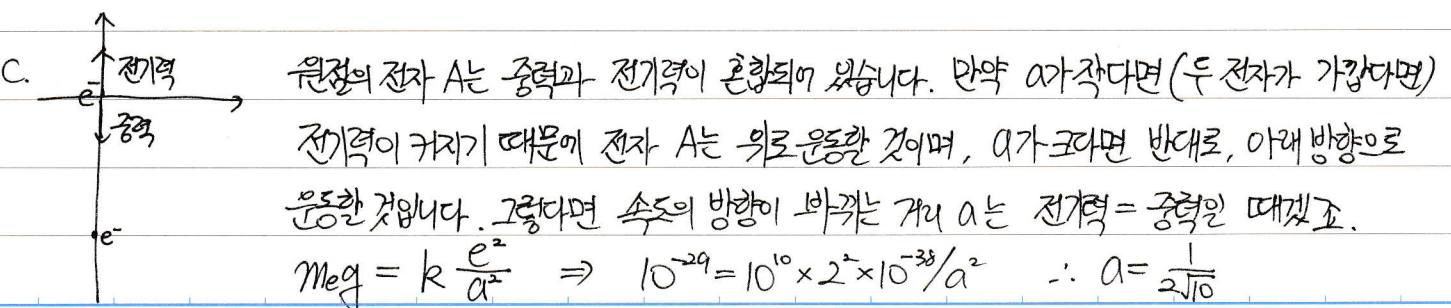 C. 전기력 원점의 전자 A는 중력과 전기력이 혼합되어 있습니다. 만약 a가 작다면 (두 전자가 가깝다면)
e⁻
중력 전기력이 커지기 때문에 전자 A는 위로 운동할 것이며, a가 크다면 반대로, 아래 방향으로
운동할 것입니다. 그렇다면 속도의 방향이 바뀌는 거리 a는 전기력 = 중력일 때겠죠.
e⁻
meg = k e²/a² ⇒ 10⁻²⁹ = 10¹⁰ × 2² × 10⁻³⁸/a² ∴ a = 1/2√10